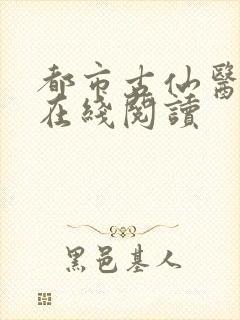 都市古仙醫
在綫閱讀
黑邑基人